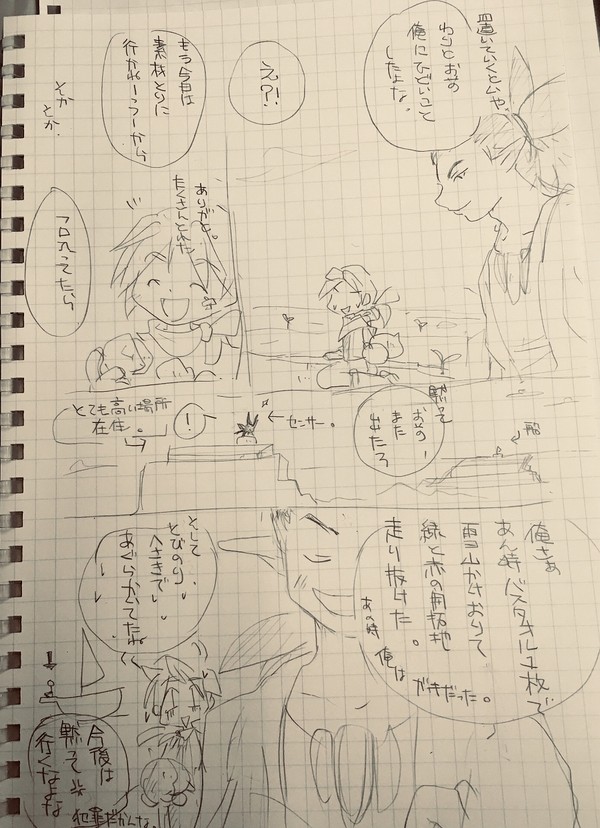 置いていくといや、
わりとおめの
俺にひどいこと
したよな。
え?!
もう今日は
素材とりに
行かれーっつーから
とか
とか.
ありがと。
たくさんとれた
フロ入ってたら
黙って
おめー
また
出たろ
船
センサー。
!
とても高い場所
在住。
俺さぁ
あん時バスタオル1枚で
雪山かけおりて
緑と赤の開拓地
走り抜けた。
あの時俺は
がきだった。
そして
とびのり
へさきで
あぐらかいてたね
今後は
黙って
行くなよな
犯罪だかんな。